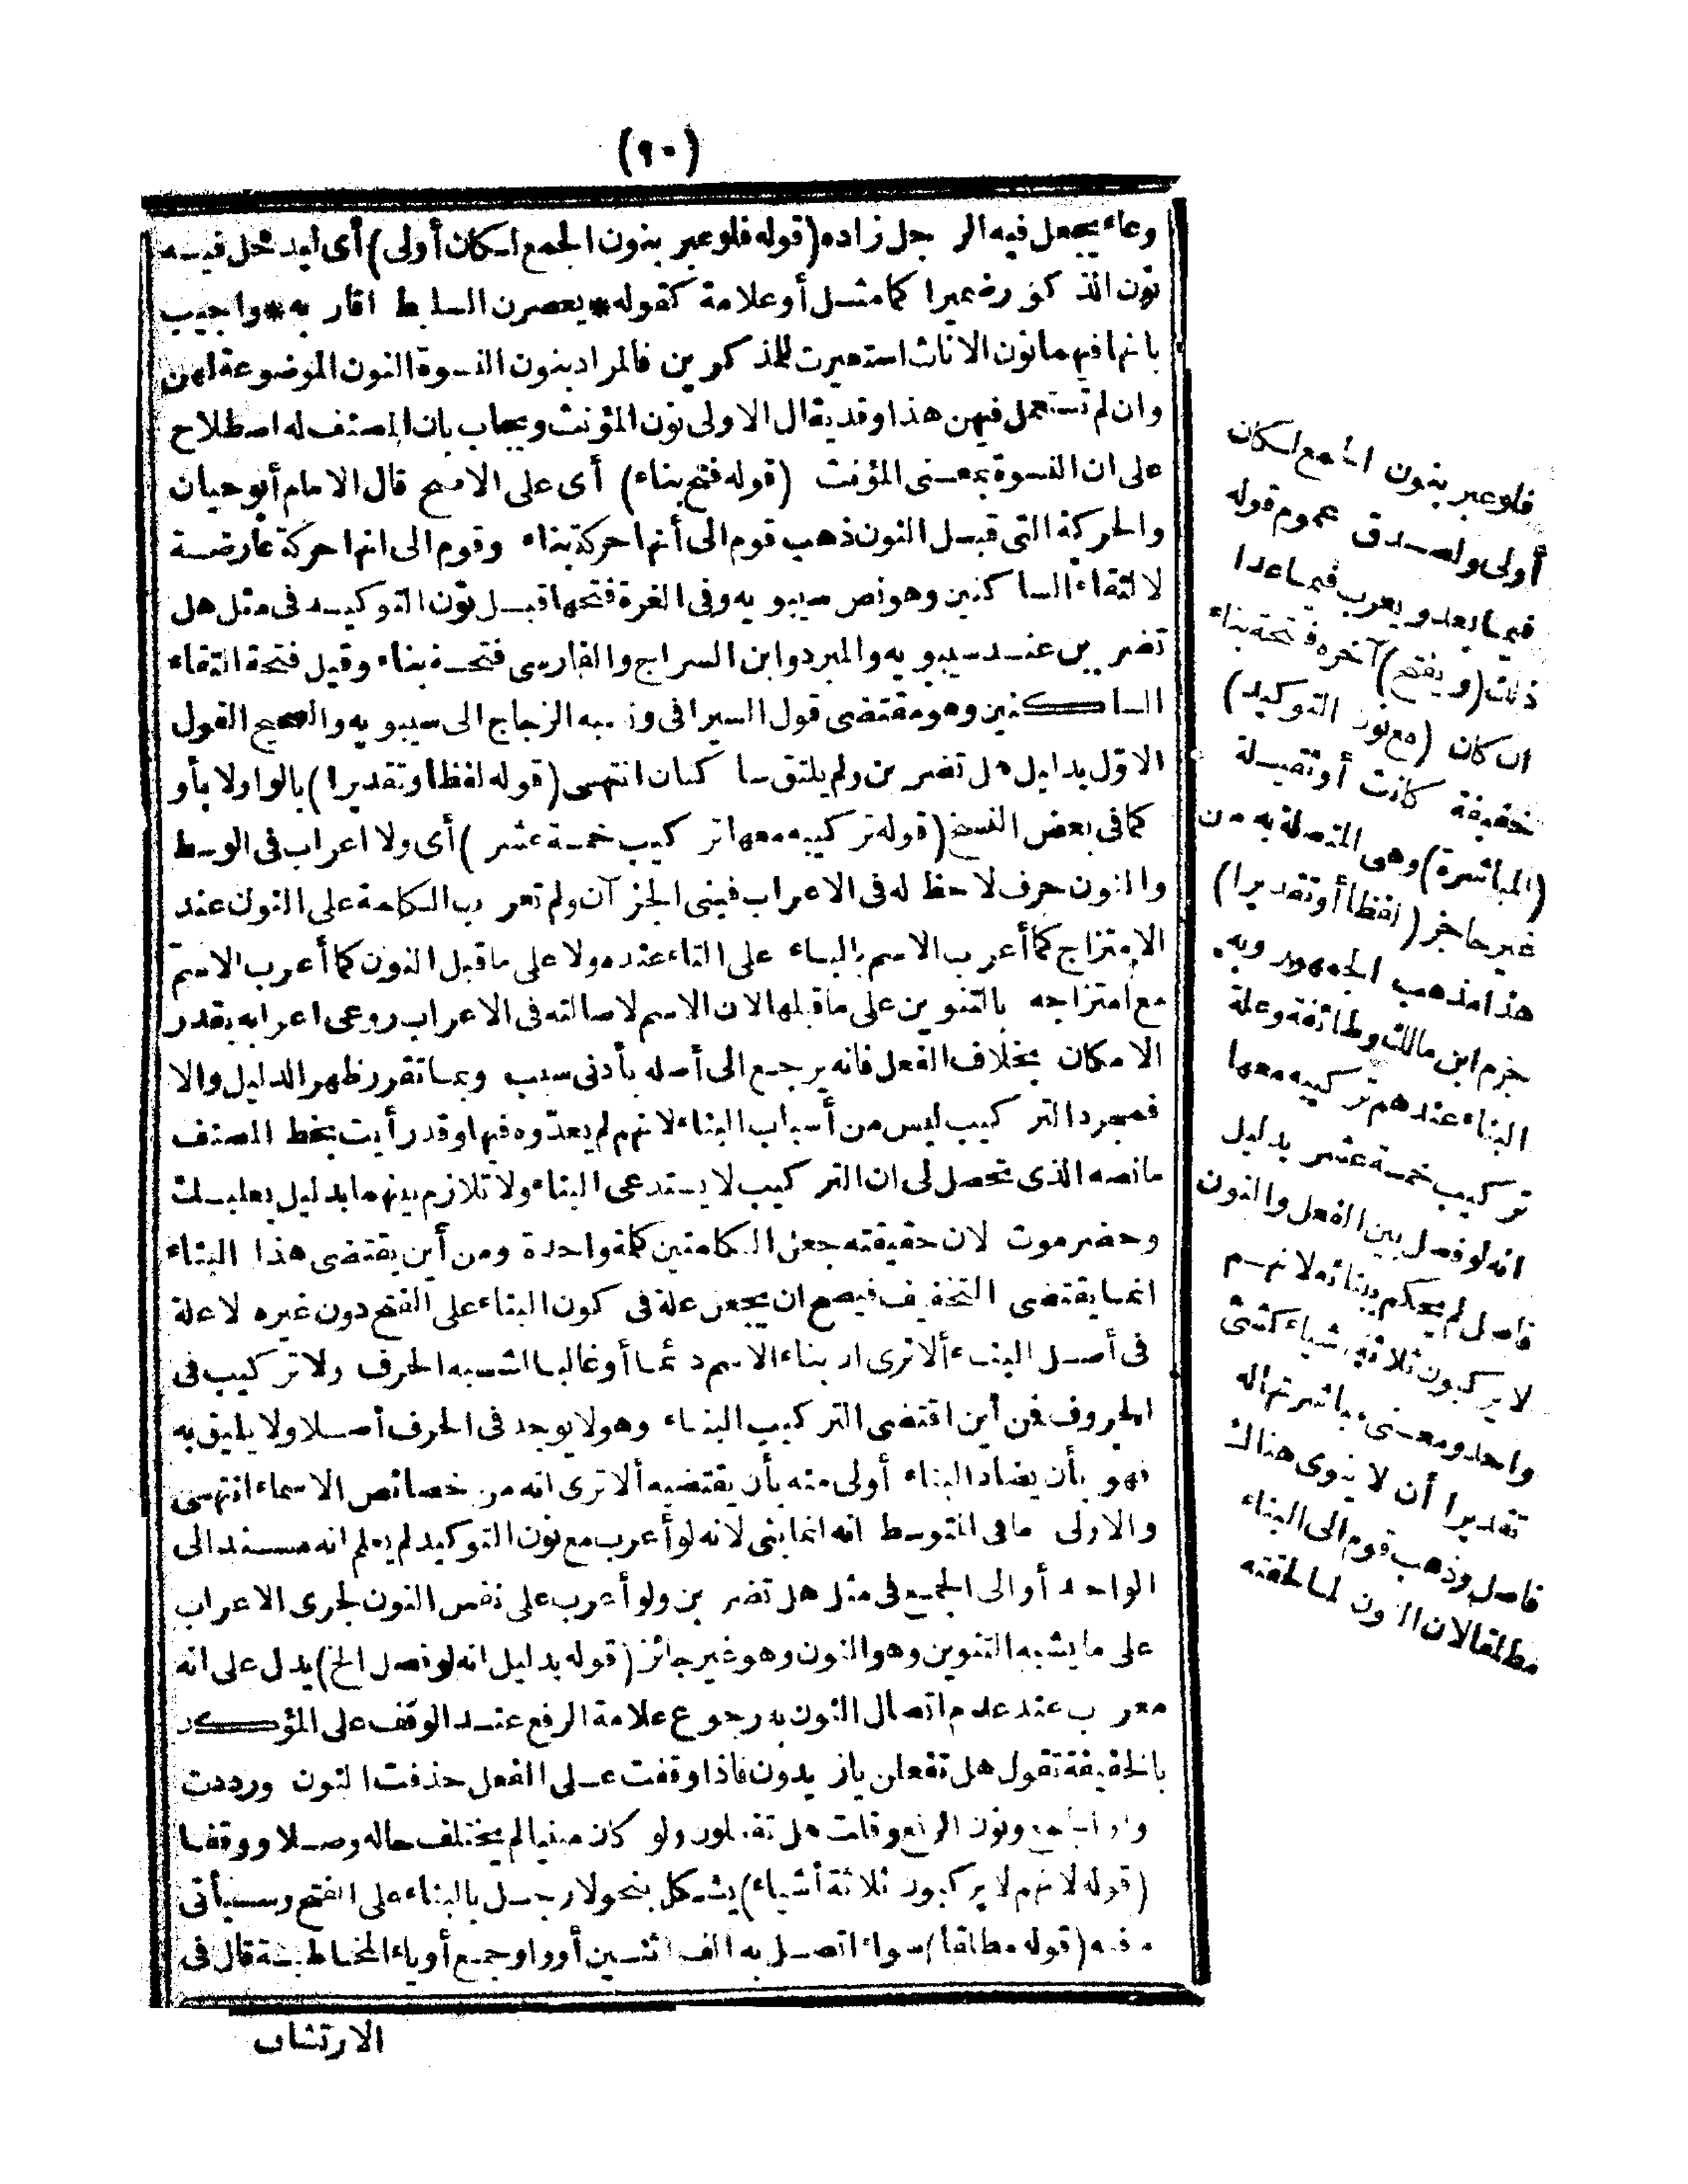 (٩٠)
وعاء يجعل فيه الرجل زاده (قوله فلو عبر بنون الجمع لكان أولى) أى ليدخل فيه
نون الذكور ضميرا كما مثل أو علامة كقوله * يعصرن السليط أقاربه * وأجيب
بانها فيهما نون الاناث استعيرت للمذكرين فالمراد بنون النسوة النون الموضوعة لهن
وان لم تستعمل فيهن هذا وقد يقال الاولى نون المؤنث ويجاب بان المصنف له اصطلاح
على ان النسوة بمعنى المؤنث (قوله فتح بناء) أى على الاصح قال الامام أبو حيان
والحركة التى قبل النون ذهب قوم الى أنها حركة بناء وقوم الى انها حركة عارضة
لالتقاء الساكنين وهو نص سيبويه وفى الغرة فتحها قبل نون التوكيد فى مثل هل
تضربن عند سيبويه والمبرد وابن السراج والفارسى فتحة بناء وقيل فتحة التقاء
الساكنين وهو مقتضى قول السيرافى ونسبه الزجاج الى سيبويه والصحيح القول
الاول بدليل هل تضربن ولم يلتق ساكنان انتهى (قوله لفظا وتقديرا) بالواو لا بأو
كما فى بعض النسخ (قوله تركيبه معها تركيب خمسة عشر) أى ولا اعراب فى الوسط
والنون حرف لا حظ له فى الاعراب فبنى الجزآن ولم تعرب الكلمة على النون عند
الامتزاج كما أعرب الاسم بالبناء على التاء عنده ولا على ما قبل النون كما أعرب الاسم
مع امتزاجه بالتنوين على ما قبلها لان الاسم لاصالته فى الاعراب روعى اعرابه بقدر
الامكان بخلاف الفعل فانه يرجع الى أصله بأدنى سبب وبما تقرر ظهر الدليل والا
فمجرد التركيب ليس من أسباب البناء لانهم لم يعدوه فيها وقد رأيت بخط المصنف
مانصه الذى تحصل لى ان التركيب لا يستدعى البناء ولا تلازم بينهما بدليل بعلبك
وحضرموت لان حقيقته جعل الكلمتين كلمة واحدة ومن أين يقتضى هذا البناء
انما يقتضى التخفيف فيصح ان يجعل علة فى كون البناء على الفتح دون غيره لا علة
فى أصل البناء ألا ترى ان بناء الاسم دائما أو غالبا الشبه الحرف ولا تركيب فى
الحروف فمن أين اقتضى التركيب البناء وهو لا يوجد فى الحرف أصلا ولا يليق به
فهو بأن يضاد البناء أولى منه بأن يقتضيه ألا ترى انه من خصائص الاسماء انتهى
والاولى ما فى المتوسط انه انما بنى لانه لو أعرب مع نون التوكيد لم يعلم انه مسند الى
الواحد أو الى الجمع فى مثل هل تضربن ولو أعرب على نفس النون لجرى الاعراب
على ما يشبه التنوين وهو النون وهو غير جائز (قوله بدليل انه لو فصل الخ) يدل على انه
معرب عند عدم اتصال النون به رجوع علامة الرفع عند الوقف على المؤكد
بالخفيفة تقول هل تفعلن يا زيدون فاذا وقفت على الفعل حذفت النون ورددت
واو الجمع ونون الرفع وقلت هل تفعلون ولو كان مبنيا لم يختلف حاله وصلا ووقفا
(قوله لانهم لا يركبون ثلاثة أشياء) يشكل بنحو لا رجل بالبناء على الفتح وسيأتى
فيه (قوله مطلقا) سواء اتصل به ألف اثنين أو واو جمع أو ياء المخاطبة قال فى
الارتشاف
فلو عبر بنون الجمع لكان
أولى وليصدق عموم قوله
فيما بعد ويعرب فيما عدا
ذلك (ويفتح) آخره فتحة بناء
ان كان (مع نون التوكيد)
خفيفة كانت أو ثقيلة
(المباشرة) وهى المتصلة به من
غير حاجز (لفظا أو تقديرا)
هذا مذهب الجمهور وبه
جزم ابن مالك وطائفة وعلة
البناء عندهم تركيبه معها
تركيب خمسة عشر بدليل
انه لو فصل بين الفعل والنون
فاصل لم يحكم ببنائه لانهم
لا يركبون ثلاثة أشياء كشئ
واحد ومعنى مباشرتها له
تقديرا أن لا ينوى هناك
فاصل وذهب قوم الى البناء
مطلقا لان النون لما لحقته